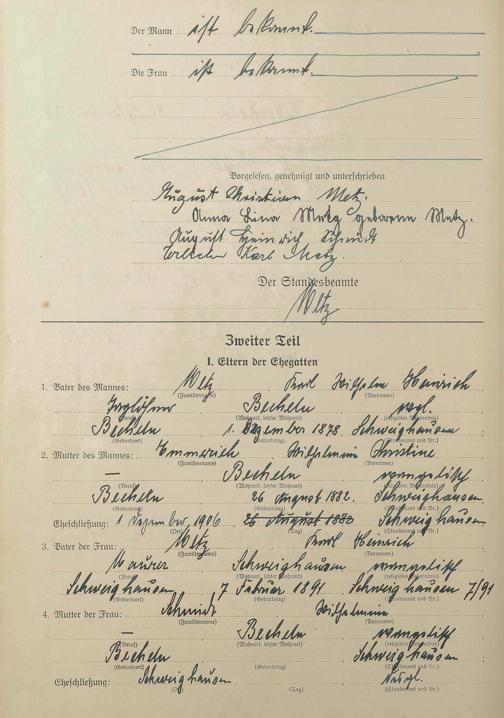 Der Mann ist bekannt.
Die Frau ist bekannt.
Vorgelesen, genehmigt und unterschrieben
August Christian Metz.
Anna Lina Metz geborene Metz.
August Heinrich Schmidt
Karl Metz.
Der Standesbeamte
Metz
Zweiter Teil
I. Eltern der Ehegatten
1. Vater des Mannes: Metz Karl Wilhelm Heinrich
(Familienname) (Vornamen)
Becheln evgl.
(Wohnort, letzter Wohnort)
Becheln 1. Dezember 1878 Schweighausen
(Geburtsort) (Geburtstag) (Standesamt und Nr.)
2. Mutter des Mannes: Emmerich Wilhelmine Christine
(Familienname) (Vornamen)
— Becheln evangelisch
(Wohnort, letzter Wohnort)
Becheln 26 August 1882. Schweighausen
(Geburtsort) (Geburtstag) (Standesamt und Nr.)
Eheschließung: 1 Dezember 1906 26 August 1882 Schweighausen
(Ort) (Tag) (Standesamt und Nr.)
3. Vater der Frau: Metz Karl Heinrich
(Familienname) (Vornamen)
Maurer Schweighausen evangelisch
(Beruf) (Wohnort, letzter Wohnort)
Schweighausen 7 Februar 1891 Schweighausen 7/91
(Geburtsort) (Geburtstag) (Standesamt und Nr.)
4. Mutter der Frau: Schmidt Wilhelmine
(Familienname) (Vornamen)
— Becheln evangelisch
(Beruf) (Wohnort, letzter Wohnort)
Becheln Schweighausen
(Geburtsort) (Geburtstag) (Standesamt und Nr.)
Eheschließung: Schweighausen
(Ort) (Tag) (Standesamt und Nr.)